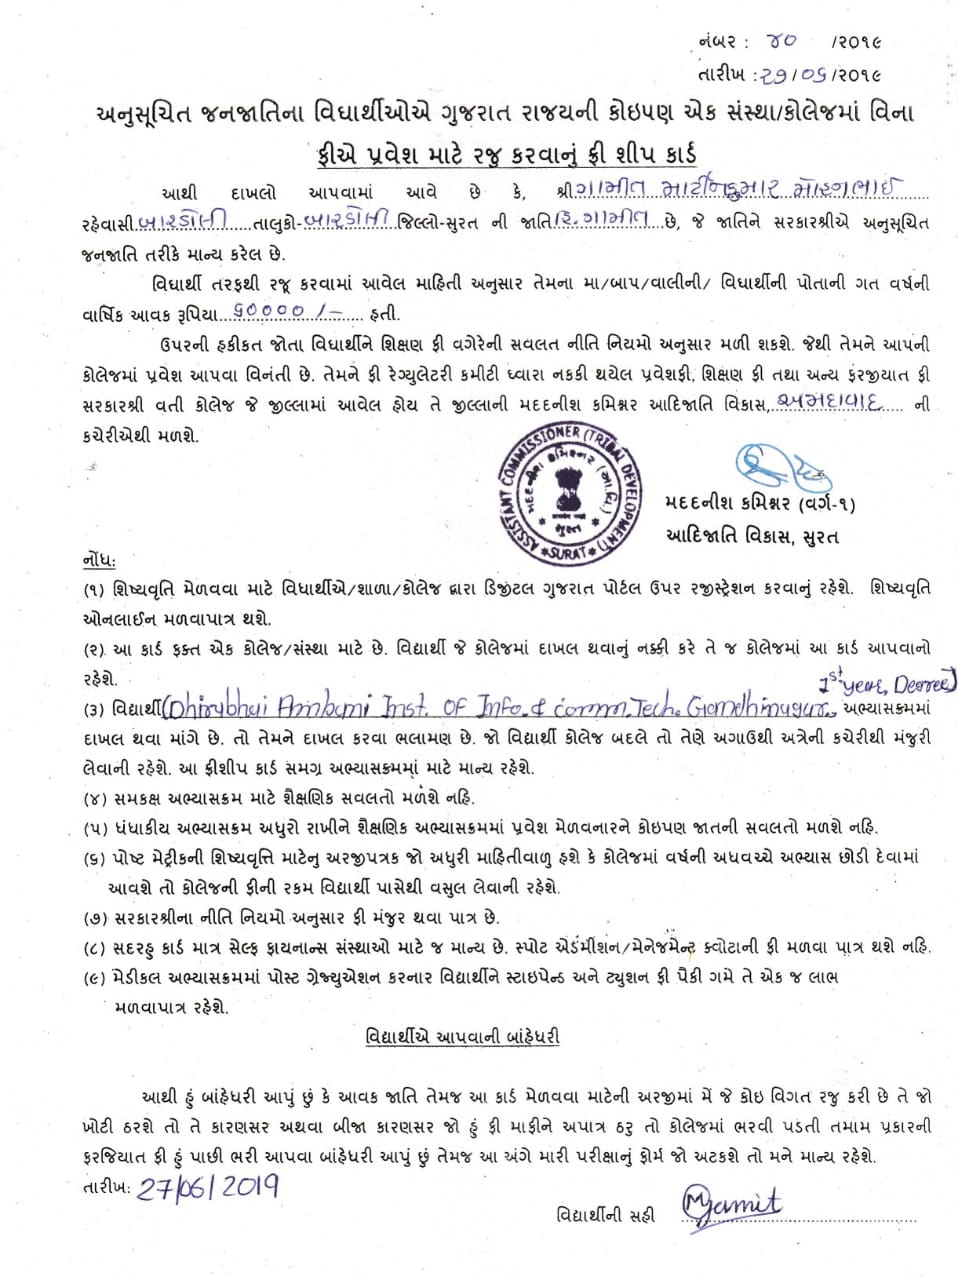 નંબર : ૪૦ /૨૦૧૯
તારીખ :૨૭/૦૬/૨૦૧૯
અનુસૂચિત જનજાતિના વિદ્યાર્થીઓએ ગુજરાત રાજયની કોઇપણ એક સંસ્થા/કોલેજમાં વિના
ફીએ પ્રવેશ માટે રજુ કરવાનું ફ્રી શીપ કાર્ડ
આથી દાખલો આપવામાં આવે છે કે, શ્રી ગામીત માર્ટીનકુમાર
રહેવાસી બારડોલી તાલુકો-બારડોલી જિલ્લો-સુરત ની જાતિ હિ.ગામીત છે, જે જાતિને સરકારશ્રીએ અનુસૂચિત
જનજાતિ તરીકે માન્ય કરેલ છે.
વિદ્યાર્થી તરફથી રજૂ કરવામાં આવેલ માહિતી અનુસાર તેમના મા/બાપ/વાલીની/ વિદ્યાર્થીની પોતાની ગત વર્ષની
વાર્ષિક આવક રૂપિયા ૬૦૦૦૦ /- હતી.
ઉપરની હકીકત જોતા વિદ્યાર્થીને શિક્ષણ ફી વગેરેની સવલત નીતિ નિયમો અનુસાર મળી શકશે. જેથી તેમને આપની
કોલેજમાં પ્રવેશ આપવા વિનંતી છે. તેમને ફી રેગ્યુલેટરી કમીટી ધ્વારા નકકી થયેલ પ્રવેશફી, શિક્ષણ ફી તથા અન્ય ફરજીયાત ફી
સરકારશ્રી વતી કોલેજ જે જીલ્લામાં આવેલ હોય તે જીલ્લાની મદદનીશ કમિશ્નર આદિજાતિ વિકાસ, અમદાવાદ ની
કચેરીએથી મળશે.
ASSISTANT COMMISSIONER (TRIBAL DEVELOPMENT)
મદદનીશ કમિશ્નર (આ.વિ.)
સુરત
*SURAT*
મદદનીશ કમિશ્નર (વર્ગ-૧)
આદિજાતિ વિકાસ, સુરત
નોંધ:
(૧) શિષ્યવૃતિ મેળવવા માટે વિદ્યાર્થીએ/શાળા/કોલેજ દ્વારા ડિજીટલ ગુજરાત પોર્ટલ ઉપર રજીસ્ટ્રેશન કરવાનું રહેશે. શિષ્યવૃતિ
ઓનલાઈન મળવાપાત્ર થશે.
(૨) આ કાર્ડ ફક્ત એક કોલેજ/સંસ્થા માટે છે. વિદ્યાર્થી જે કોલેજમાં દાખલ થવાનું નક્કી કરે તે જ કોલેજમાં આ કાર્ડ આપવાનો
રહેશે.
1st year, Degree)
(૩) વિદ્યાર્થી (Dhirubhai Ambani Inst. OF Info. & comm. Tech. Gandhinagar, અભ્યાસક્રમમાં
દાખલ થવા માંગે છે. તો તેમને દાખલ કરવા ભલામણ છે. જો વિદ્યાર્થી કોલેજ બદલે તો તેણે અગાઉથી અત્રેની કચેરીથી મંજુરી
લેવાની રહેશે. આ ફીશીપ કાર્ડ સમગ્ર અભ્યાસક્રમમાં માટે માન્ય રહેશે.
(૪) સમકક્ષ અભ્યાસક્રમ માટે શૈક્ષણિક સવલતો મળશે નહિ.
(૫) ધંધાકીય અભ્યાસક્રમ અધુરો રાખીને શૈક્ષણિક અભ્યાસક્રમમાં પ્રવેશ મેળવનારને કોઇપણ જાતની સવલતો મળશે નહિ.
(૬) પોષ્ટ મેટ્રીકની શિષ્યવૃત્તિ માટેનુ અરજીપત્રક જો અધુરી માહિતીવાળુ હશે કે કોલેજમાં વર્ષની અધવચ્ચે અભ્યાસ છોડી દેવામાં
આવશે તો કોલેજની ફીની રકમ વિદ્યાર્થી પાસેથી વસુલ લેવાની રહેશે.
(૭) સરકારશ્રીના નીતિ નિયમો અનુસાર ફી મંજુર થવા પાત્ર છે.
(૮) સદરહુ કાર્ડ માત્ર સેલ્ફ ફાયનાન્સ સંસ્થાઓ માટે જ માન્ય છે. સ્પોટ એડમીશન/મેનેજમેન્ટ ક્વોટાની ફી મળવા પાત્ર થશે નહિ.
(૯) મેડીકલ અભ્યાસક્રમમાં પોસ્ટ ગ્રેજ્યુએશન કરનાર વિદ્યાર્થીને સ્ટાઇપેન્ડ અને ટ્યુશન ફી પૈકી ગમે તે એક જ લાભ
મળવાપાત્ર રહેશે.
વિદ્યાર્થીએ આપવાની બાંહેધરી
આથી હું બાંહેધરી આપું છું કે આવક જાતિ તેમજ આ કાર્ડ મેળવવા માટેની અરજીમાં મેં જે કોઇ વિગત રજુ કરી છે તે જો
ખોટી ઠરશે તો તે કારણસર અથવા બીજા કારણસર જો હું ફી માફીને અપાત્ર ઠરુ તો કોલેજમાં ભરવી પડતી તમામ પ્રકારની
ફરજિયાત ફી હું પાછી ભરી આપવા બાંહેધરી આપું છું તેમજ આ અંગે મારી પરીક્ષાનું ફોર્મ જો અટકશે તો મને માન્ય રહેશે.
તારીખ: 27/06/2019
વિદ્યાર્થીની સહી MGamit